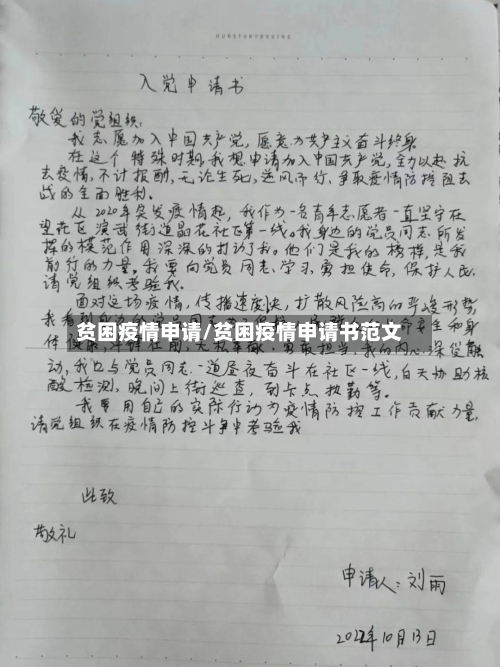 入党申请书
敬爱的党组织:
我志愿加入中国共产党,愿意为共产主义奋斗终身
在这个特殊时期,我想申请加入中国共产党,全力以赴抗
击疫情,不计报酬,无论生死,逆风而行、争取疫情防控阻击
战的全面胜利。
从2020年突发疫情起,我作为一名青年志愿者一直坚守在
望花区演武街道晶花社区第一线。我身边的党员同志所发
挥的模范作用深深的打动了我。他们是我的榜样,是我
前行的力量。我要向党员同志学习,勇担使命,保护人民,
请党组织考验我。
面对这场疫情,传播速度快,扩散风险高的严峻形势,
我看到
贫困疫情申请/贫困疫情申请书范文
动,我也与党员同志一道昼夜奋斗在社区一线,白天协助核
酸检测,晚间上街巡查,到卡点执勤等。
我要用自己的实际行动为疫情防控工作贡献力量,
请党组织在疫情防控斗争中考验我
此致
敬礼
申请人:刘雨
2022年10月13日